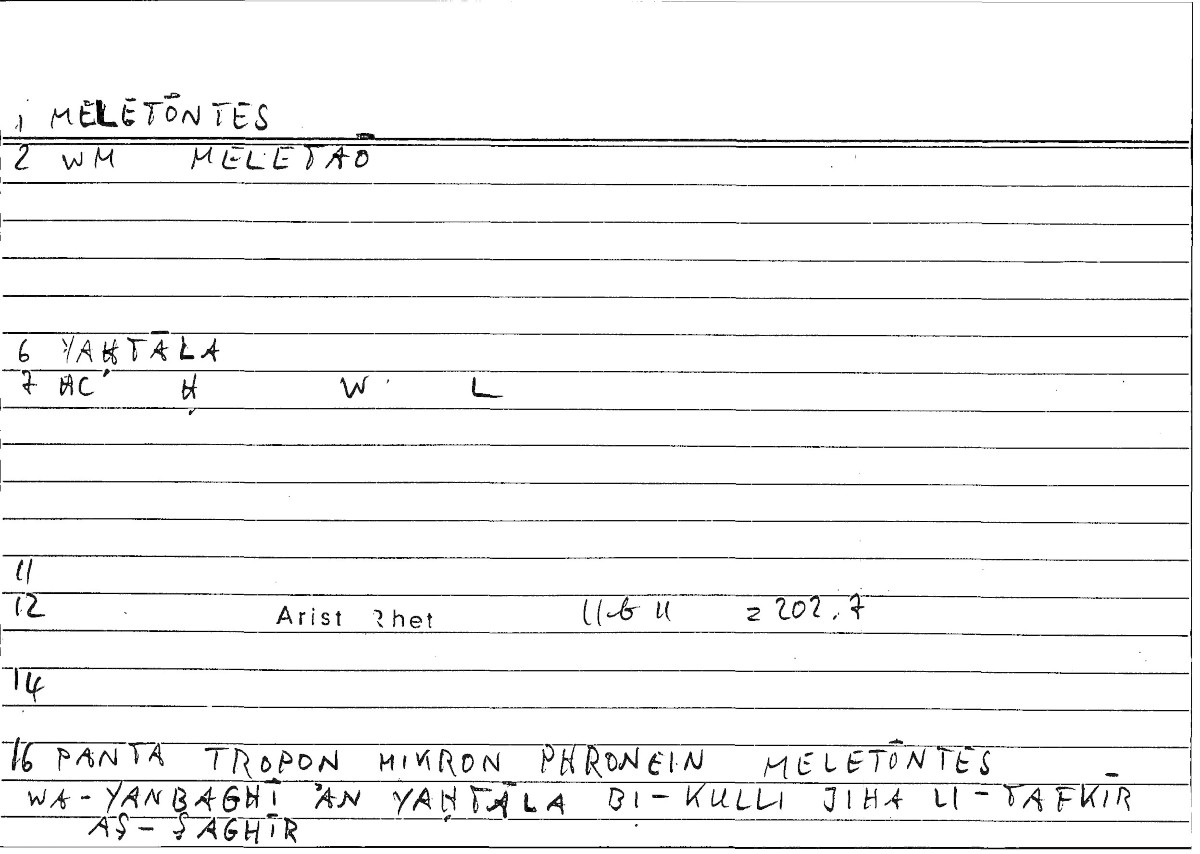 1 MELETŌNTES
2 WM MELETAŌ
6 YAḤTĀLA
7 ḤC' Ḥ W L
11
12 Arist Rhet 11 b 11 = 202.7
14
16 PANTA TROPON MIKRON PHRONEIN MELETŌNTES
WA-YANBAGHĪ 'AN YAḤTĀLA BI-KULLI JIHA LI-TAFKĪR
AṢ-ṢAGHĪR